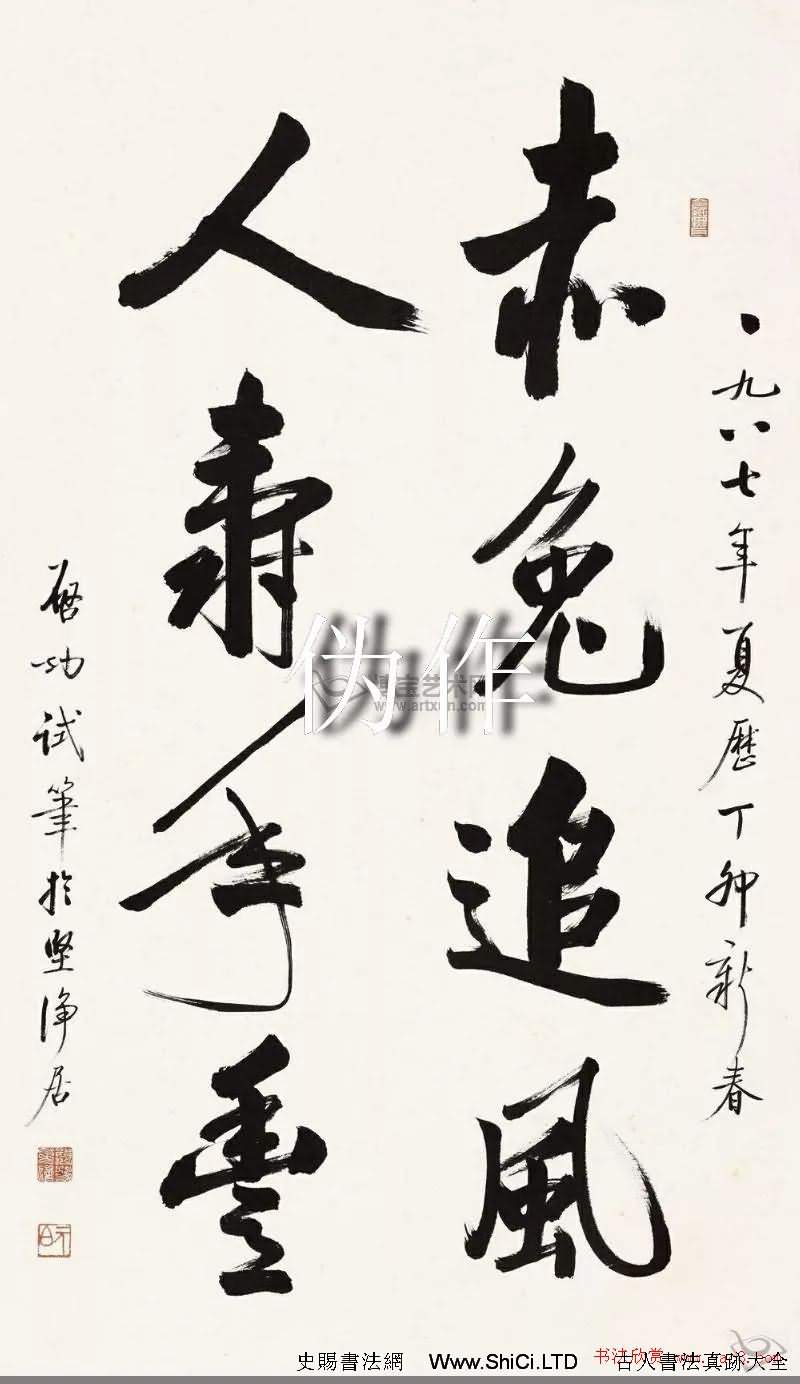 一九八七年夏歷丁卯新春
赤兔追風
人壽年豐
启功試筆於堅淨居
伪作
博宝艺术网
www.artxun.com
史賜書法網 Www.ShiCi.LTD 古人書法真跡大全
书法欣赏